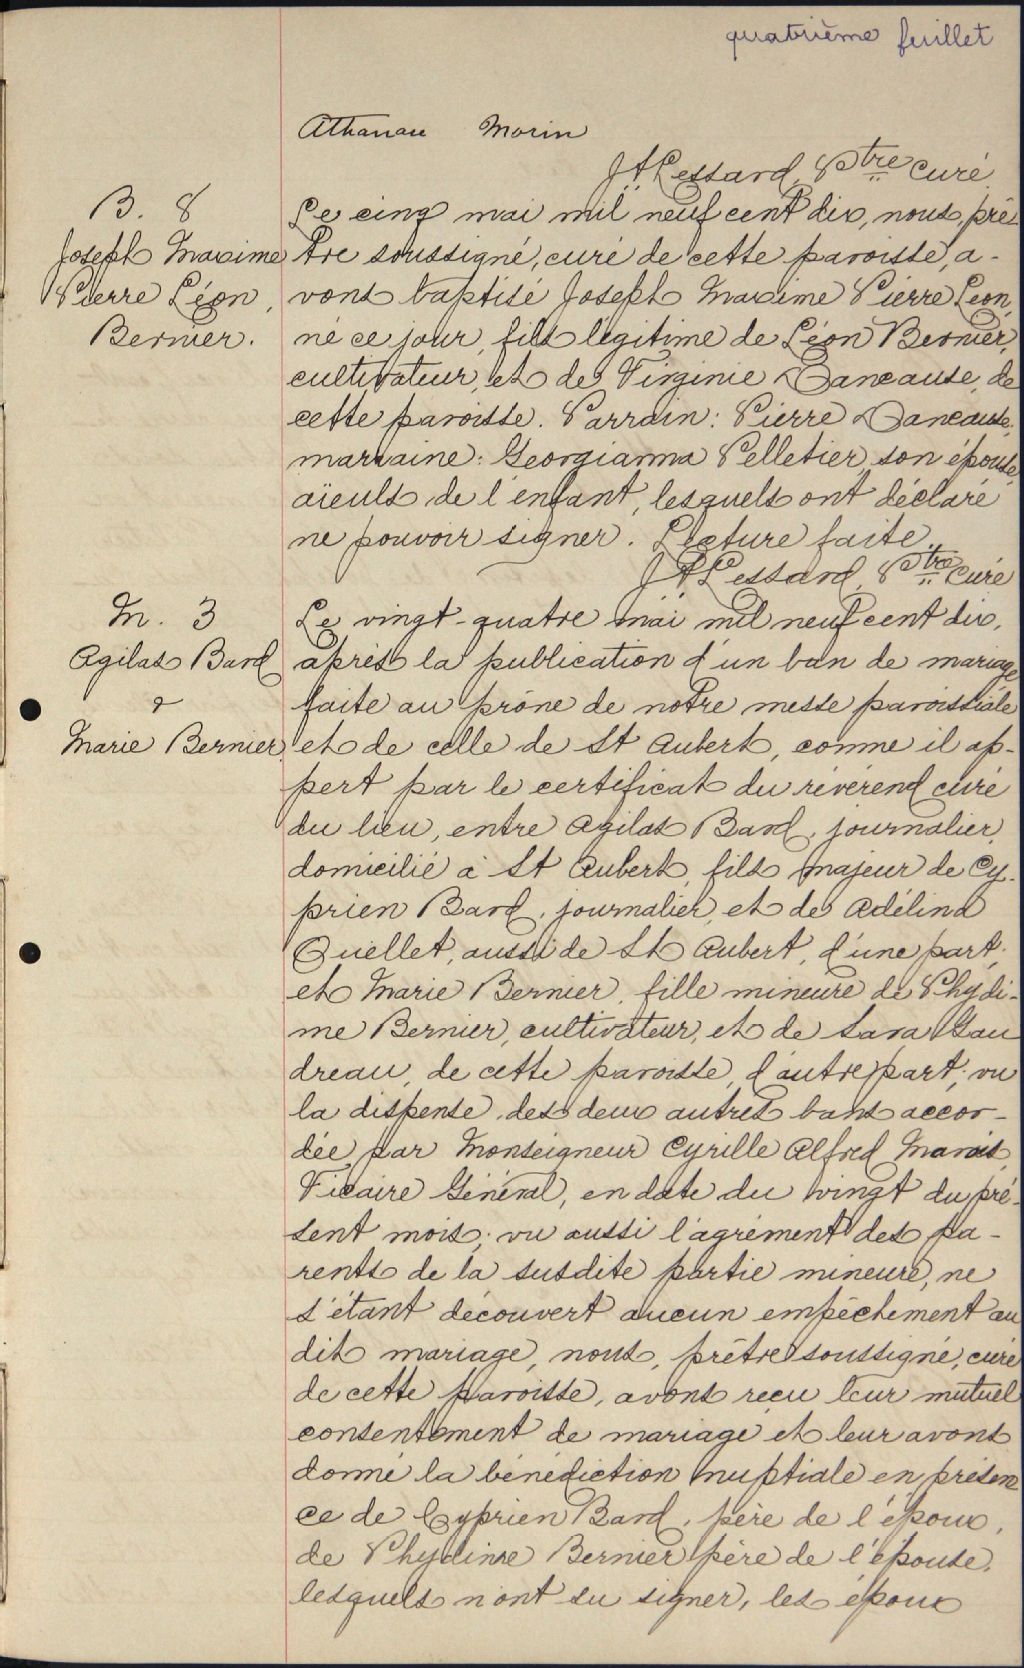 quatrième feuillet
Athanase Morin
J A Lessard, Ptre curé
B. 8
Joseph Maxime
Pierre Léon,
Bernier.
Le cinq mai mil neuf cent dix, nous, prê
tre soussigné, curé de cette paroisse, a-
vons baptisé Joseph Maxime Pierre Léon,
né ce jour, fils légitime de Léon Bernier,
cultivateur, et de Virginie Dancause, de
cette paroisse. Parrain: Pierre Dancause;
marraine: Georgianna Pelletier, son épouse,
aïeuls de l'enfant, lesquels ont déclaré
ne pouvoir signer. Lecture faite.
J A Lessard, Ptre curé
M. 3
Agilas Bard
&
Marie Bernier.
Le vingt-quatre mai mil neuf cent dix,
après la publication d'un ban de mariage
faite au prône de notre messe paroissiale
et de celle de St Aubert, comme il ap-
pert par le certificat du révérend curé
du lieu, entre Agilas Bard, journalier,
domicilié à St Aubert, fils majeur de Cy-
prien Bard, journalier, et de Adélina
Ouellet, aussi de St Aubert, d'une part;
et Marie Bernier, fille mineure de Phydi-
me Bernier, cultivateur, et de Sara Gau
dreau, de cette paroisse, d'autre part; vu
la dispense des deux autres bans accor-
dée par Monseigneur Cyrille Alfred Marois,
Vicaire Général, en date du vingt du pré-
sent mois; vu aussi l'agrément des pa-
rents de la susdite partie mineure, ne
s'étant découvert aucun empêchement au
dit mariage, nous, prêtre soussigné, curé
de cette paroisse, avons reçu leur mutuel
consentement de mariage et leur avons
donné la bénédiction nuptiale en présen
ce de Cyprien Bard, père de l'époux,
de Phydime Bernier père de l'épouse,
lesquels n'ont su signer, les époux